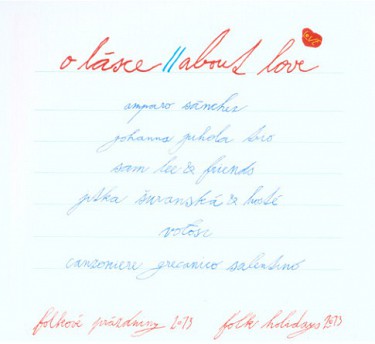 o lásce // about love
love
amparo sánchez
johanna juhola trio
sam lee & friends
jitka šuranská & hosté
vołosi
canzoniere grecanico salentino
folkové prázdniny 2013 folk holidays 2013